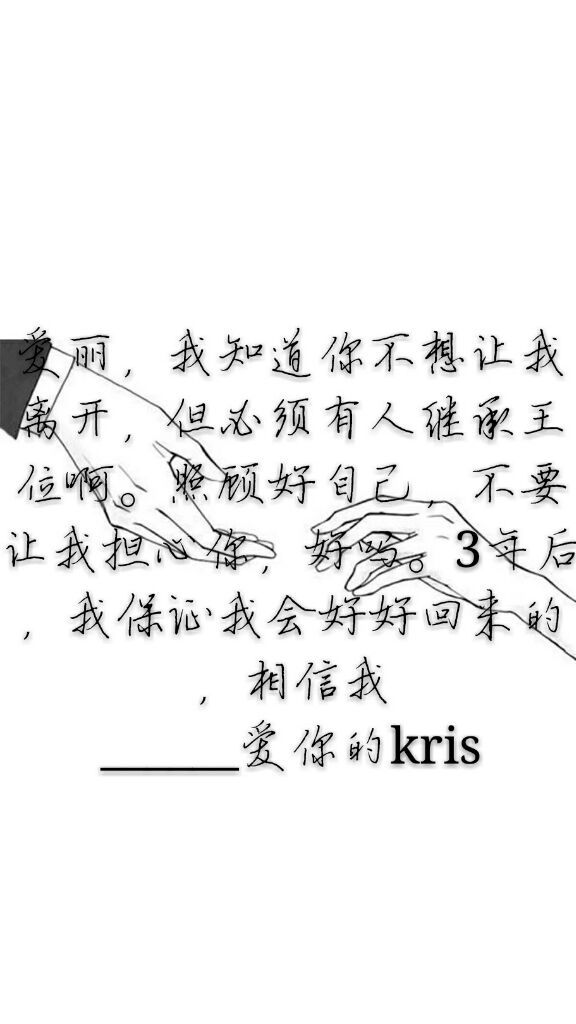 爱丽，我知道你不想让我
离开，但必须有人继承王
位啊。照顾好自己，不要
让我担心你，好吗。3年后
，我保证我会好好回来的
，相信我
______爱你的kris